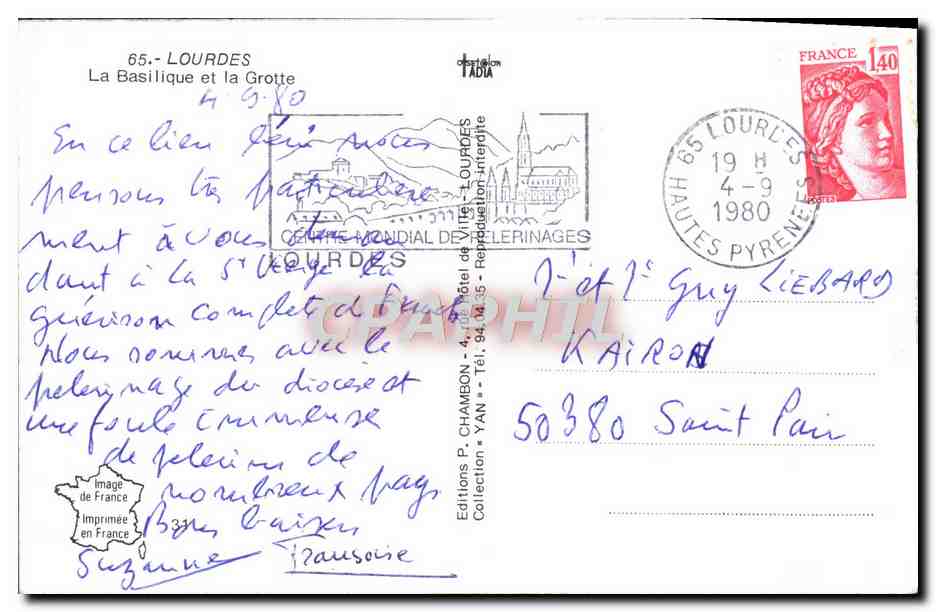 65.- LOURDES
La Basilique et la Grotte
4.9.80
En ce lieu béni nous
pensons très particulière
ment à vous
dant à la Ste Vierge la
guérison complète d'
Nous sommes avec le
pelerinage du diocèse et
une foule immense
de pelerins de
nombreux pays
Bons baisers
Suzanne Françoise
Image
de France
Imprimée
en France
31
CENTRE MONDIAL DE PELERINAGES
LOURDES
Editions P. CHAMBON - 4, rue Hôtel de Ville - LOURDES
Collection « YAN » - Tél. 94.04.35 - Reproduction interdite
FRANCE
1,40
POSTES
65 LOURDES
19 H
4-9
1980
HAUTES PYRENEES
et Guy LIEBARD
KAIRON
50380 Saint Pair
CPAPHIL